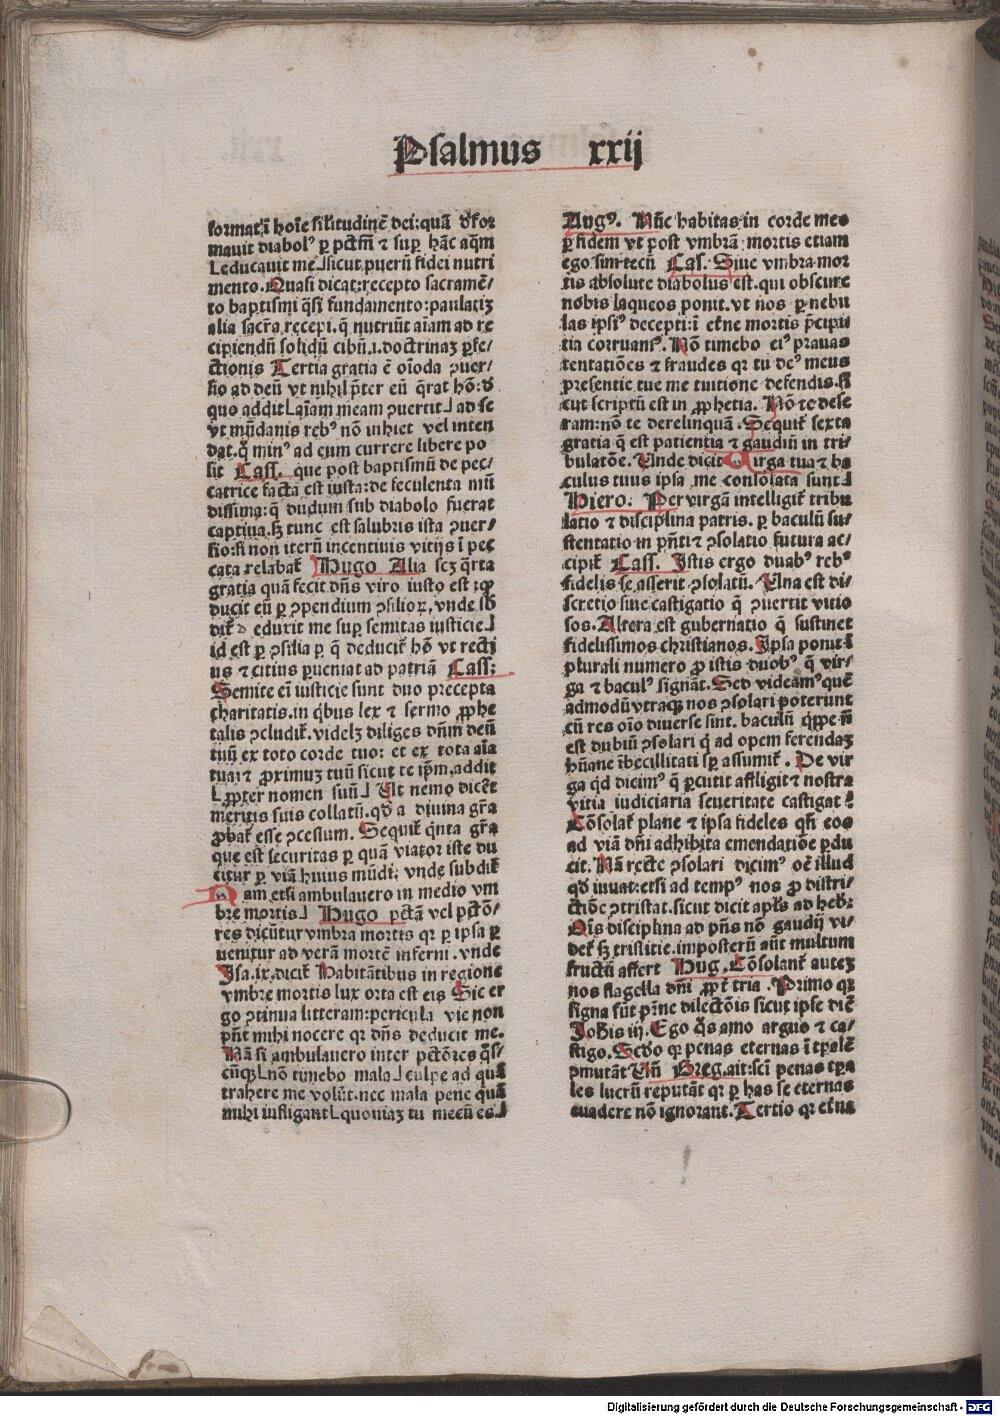 Psalmus xxij
format᷒ ī hoīe sil̄itudinē dei: quā de̍for
mauit diabolꝰ ꝑ pctm̄ ⁊ suꝑ hāc aq̄m
⌊educauit me⌋ sicut pueru̅ fidei nutri
mento. Quasi dicat: recepto sacramē/
to baptismi q̄si fundamento: paulatiꝫ
alia sacr̄a recepi. q̄ nutriūt aīam ad re
cipiendū solidū cibū .i. doctrinaꝫ ꝑfe/
ctionis Tertia gratia ē oīoda ꝯuer/
sio ad deū vt nihil p̄ter eū q̄rat hō: d̓
quo addit ⌊aīam meam ꝯuertit⌋ ad se
vt mūdanis rebꝰ nō inhiet vel inten
dat. q̄ minꝰ ad eum currere libere po
sit Cass. que post baptismū de pec/
catrice facta est iusta: de feculenta mū
dissima: q̄ dudum sub diabolo fuerat
captiua. sꝫ tunc est salubris ista ꝯuer/
sio: si non iterū incentiuis vitijs ī pec
cata relabat᷒ Hugo Alia scꝫ q̄rta
gratia quā fecit dn̄s viro iusto est: ꝙ
ducit eū ꝑ ꝯpendium ꝯsilioꝝ, vnde sb̄
dit᷒ eduxit me suꝑ semitas iusticie⌋
id est ꝑ ꝯsilia ꝑ q̄ deducit᷒ hō vt recti
us ⁊ citius ꝑueniat ad patriā Cass:
Semite em̄ iusticie sunt duo precepta
charitatis. in q̄bus lex ⁊ sermo ꝓphe
talis ꝯcludit᷒. videlꝫ diliges dn̄m deū
tuū ex toto corde tuo: et ex tota aīa
tua: ⁊ ꝓximuꝫ tuū sicut te ip̄m, addit
⌊ꝓpter nomen suū⌋ Ut nemo dicēt
meritis suis collatū. qd̓ a diuina gr̄a
ꝓbat᷒ esse ꝯcessum. Sequit᷒ q̄nta gr̄a
que est securitas ꝑ quā viator iste du
citur ꝑ viā huius mūdi: vnde subdit᷒
Nam etsi ambulauero in medio vm
bre mortis⌋ Hugo pctā vel pctō/
res dicūtur vmbra mortis qꝛ ꝑ ipsa ꝑ
uenitur ad verā mortē inferni. vnde
Isa. ix. dicit᷒ Habitātibus in regione
vmbre mortis lux orta est eis Sic er
go ꝯtinua litteram: pericula vie non
pn̄t mihi nocere qꝛ dn̄s deducit me.
Nā si ambulauero inter pctōres q̄si/
cūqꝫ ⌊nō timebo mala⌋ culpe ad quā
trahere me volūt. nec mala pene quā
mihi instigant ⌊quoniaꝫ tu mecū es⌋
Augꝰ. Nūc habitas in corde meo
ꝑ fidem vt post vmbrā mortis etiam
ego sim tecū Cas. Siue vmbra mor
tis absolute diabolus est. qui obscure
nobis laqueos ponit. vt nos ꝑ nebu
las ipsiꝰ decepti: ī et̄ne mortis p̄cipi
tia corruamꝰ. Nō timebo eiꝰ prauas
tentatiōes ⁊ fraudes qꝛ tu deꝰ meus
presentie tue me tuitione defendis. si
cut scriptū est in ꝓphetia. Nō te dese
ram: nō te derelinquā. Sequit᷒ sexta
gratia q̄ est patientia ⁊ gaudiū in tri/
bulatōe. Unde dicit Uirga tua ⁊ ba
culus tuus ipsa me consolata sunt⌋
Hiero: Per virgā intelligit᷒ tribu
latio ⁊ disciplina patris. ꝑ baculū su/
stentatio in pn̄ti ⁊ ꝯsolatio futura ac/
cipit᷒ Cass. Istis ergo duabꝰ rebꝰ
fidelis se asserit ꝯsolatū. Una est di/
scretio siue castigatio q̄ ꝯuertit vitio
sos. Altera est gubernatio q̄ sustinet
fidelissimos christianos. Ipsa ponit᷒ ī
plurali numero ꝓ istis duobꝰ q̄ vir/
ga ⁊ baculꝰ signāt. Sed videamꝰ quē
admodū vtraqꝫ nos ꝯsolari poterunt
cū res oīo diuerse sint. baculū q̄ꝑpe n̄
est dubiū ꝯsolari q̄ ad opem ferendaꝫ
hūane ībecillitati sꝑ assumit᷒. De vir
ga qd̓ dicimꝰ q̄ ꝑcutit affligit ⁊ nostra
vitia iudiciaria seueritate castigat?
Cōsolat᷒ plane ⁊ ipsa fideles qn̄ eos
ad viā dn̄i adhibita emendatiōe ꝑdu
cit. Nā recte ꝯsolari dicimꝰ oē illud
qd̓ iuuat: etsi ad tempꝰ nos ꝓ distri/
ctiōe ꝯtristat. sicut dicit apl̄s ad heb̄:
Ois disciplina ad pn̄s nō gaudij vi/
det᷒ sꝫ tristicie. imposterū aūt multum
fructū affert Hug. Cōsolant᷒ auteꝫ
nos flagella dn̄i ꝓpt᷒ tria. Primo qꝛ
signa sūt pr̄ne dilectōis sicut ipse dic̄
Joh̄is iij. Ego q̄s amo arguo ⁊ ca/
stigo. Scd̓o qꝛ penas eternas ī tꝑale̅
ꝯmutāt Un̄ Greg. ait: sci penas tꝑa
les lucrū reputāt qꝛ ꝑ has se eternas
euadere nō ignorant. Tertio qꝛ et̄na
Digitalisierung gefördert durch die Deutsche Forschungsgemeinschaft - DFG